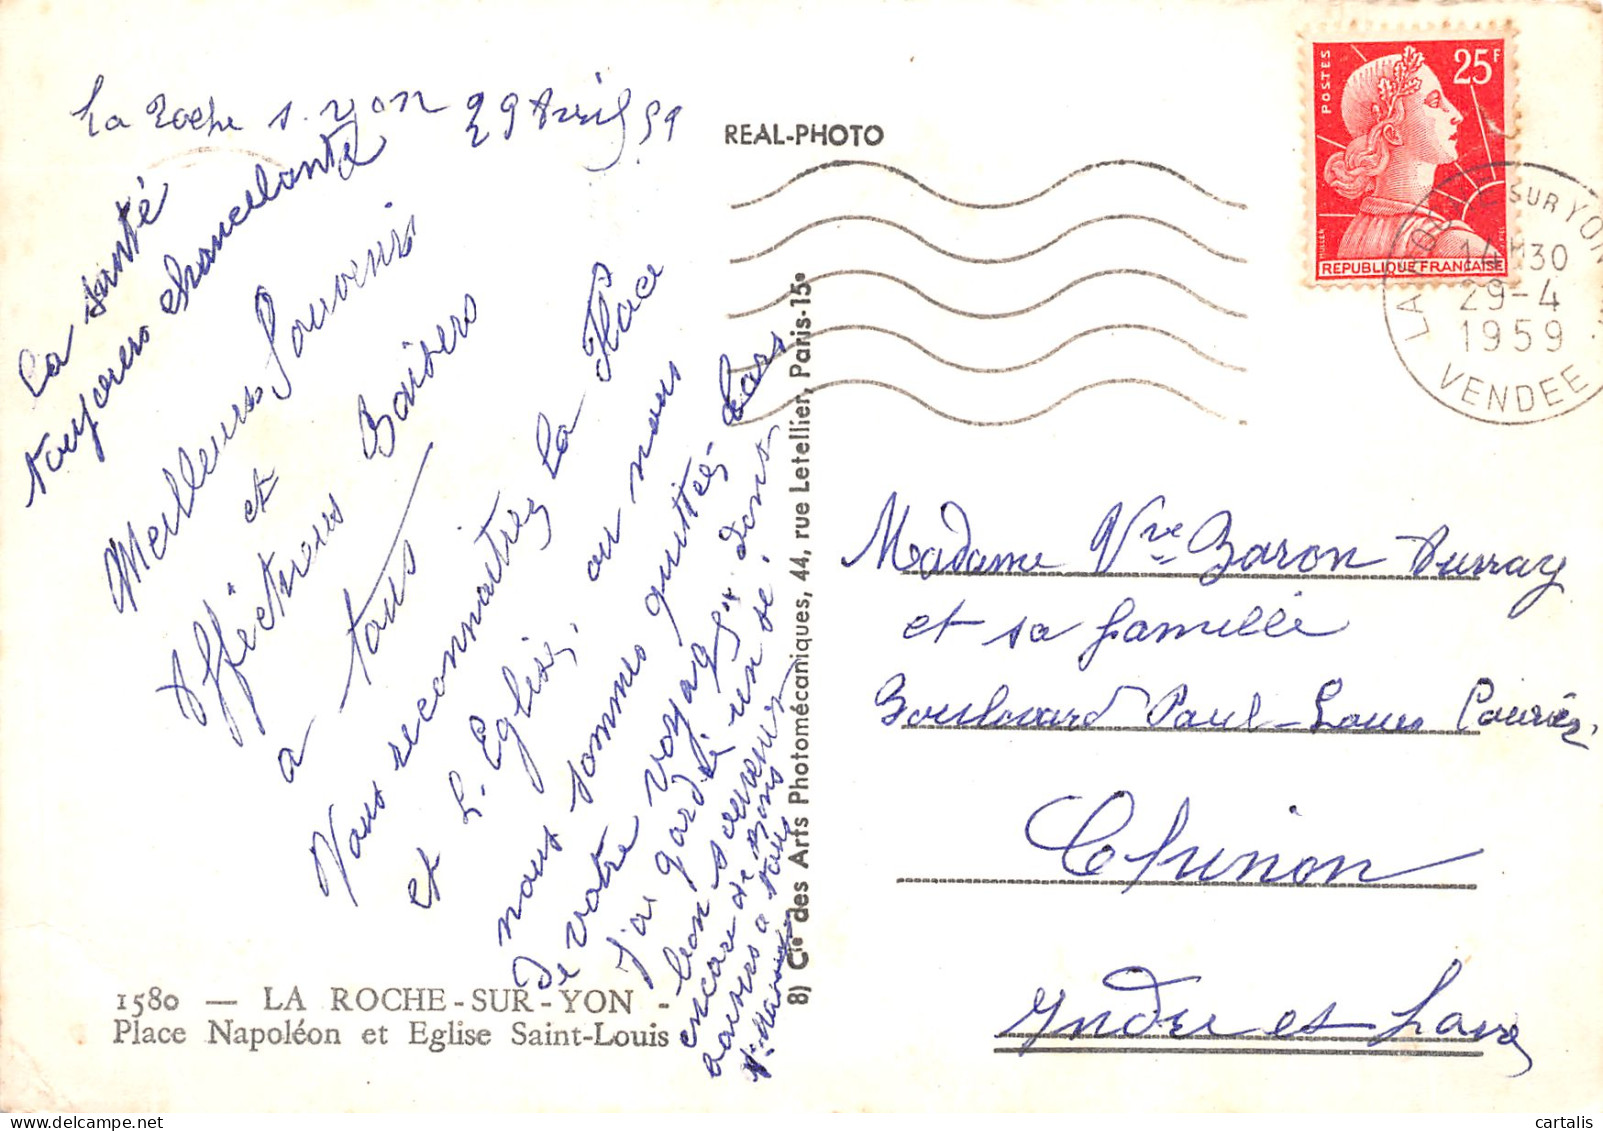 La Roche s. yon 29 Avril 59
La santé
toujours chancelante
Meilleurs Souvenirs
et
Affectueux Baisers
a tous
Vous reconnaitrez la Place
et L. Eglise, ou nous
nous sommes quittés lors
de votre voyage dont
J'ai gardé un
bon souvenir
encore de
a tous
REAL-PHOTO
POSTES
25F
MULLER
REPUBLIQUE FRANÇAISE
LA ROCHE SUR YON
14H30
29-4
1959
VENDEE
8) Cie des Arts Photomécaniques, 44, rue Letellier, Paris-15e
Madame Vve Baron Durray
et sa famille
Boulevard Paul-Louis Courier
Chinon
Yndre et Loire
1580 — LA ROCHE-SUR-YON -
Place Napoléon et Eglise Saint-Louis
cartalis delcampe.net